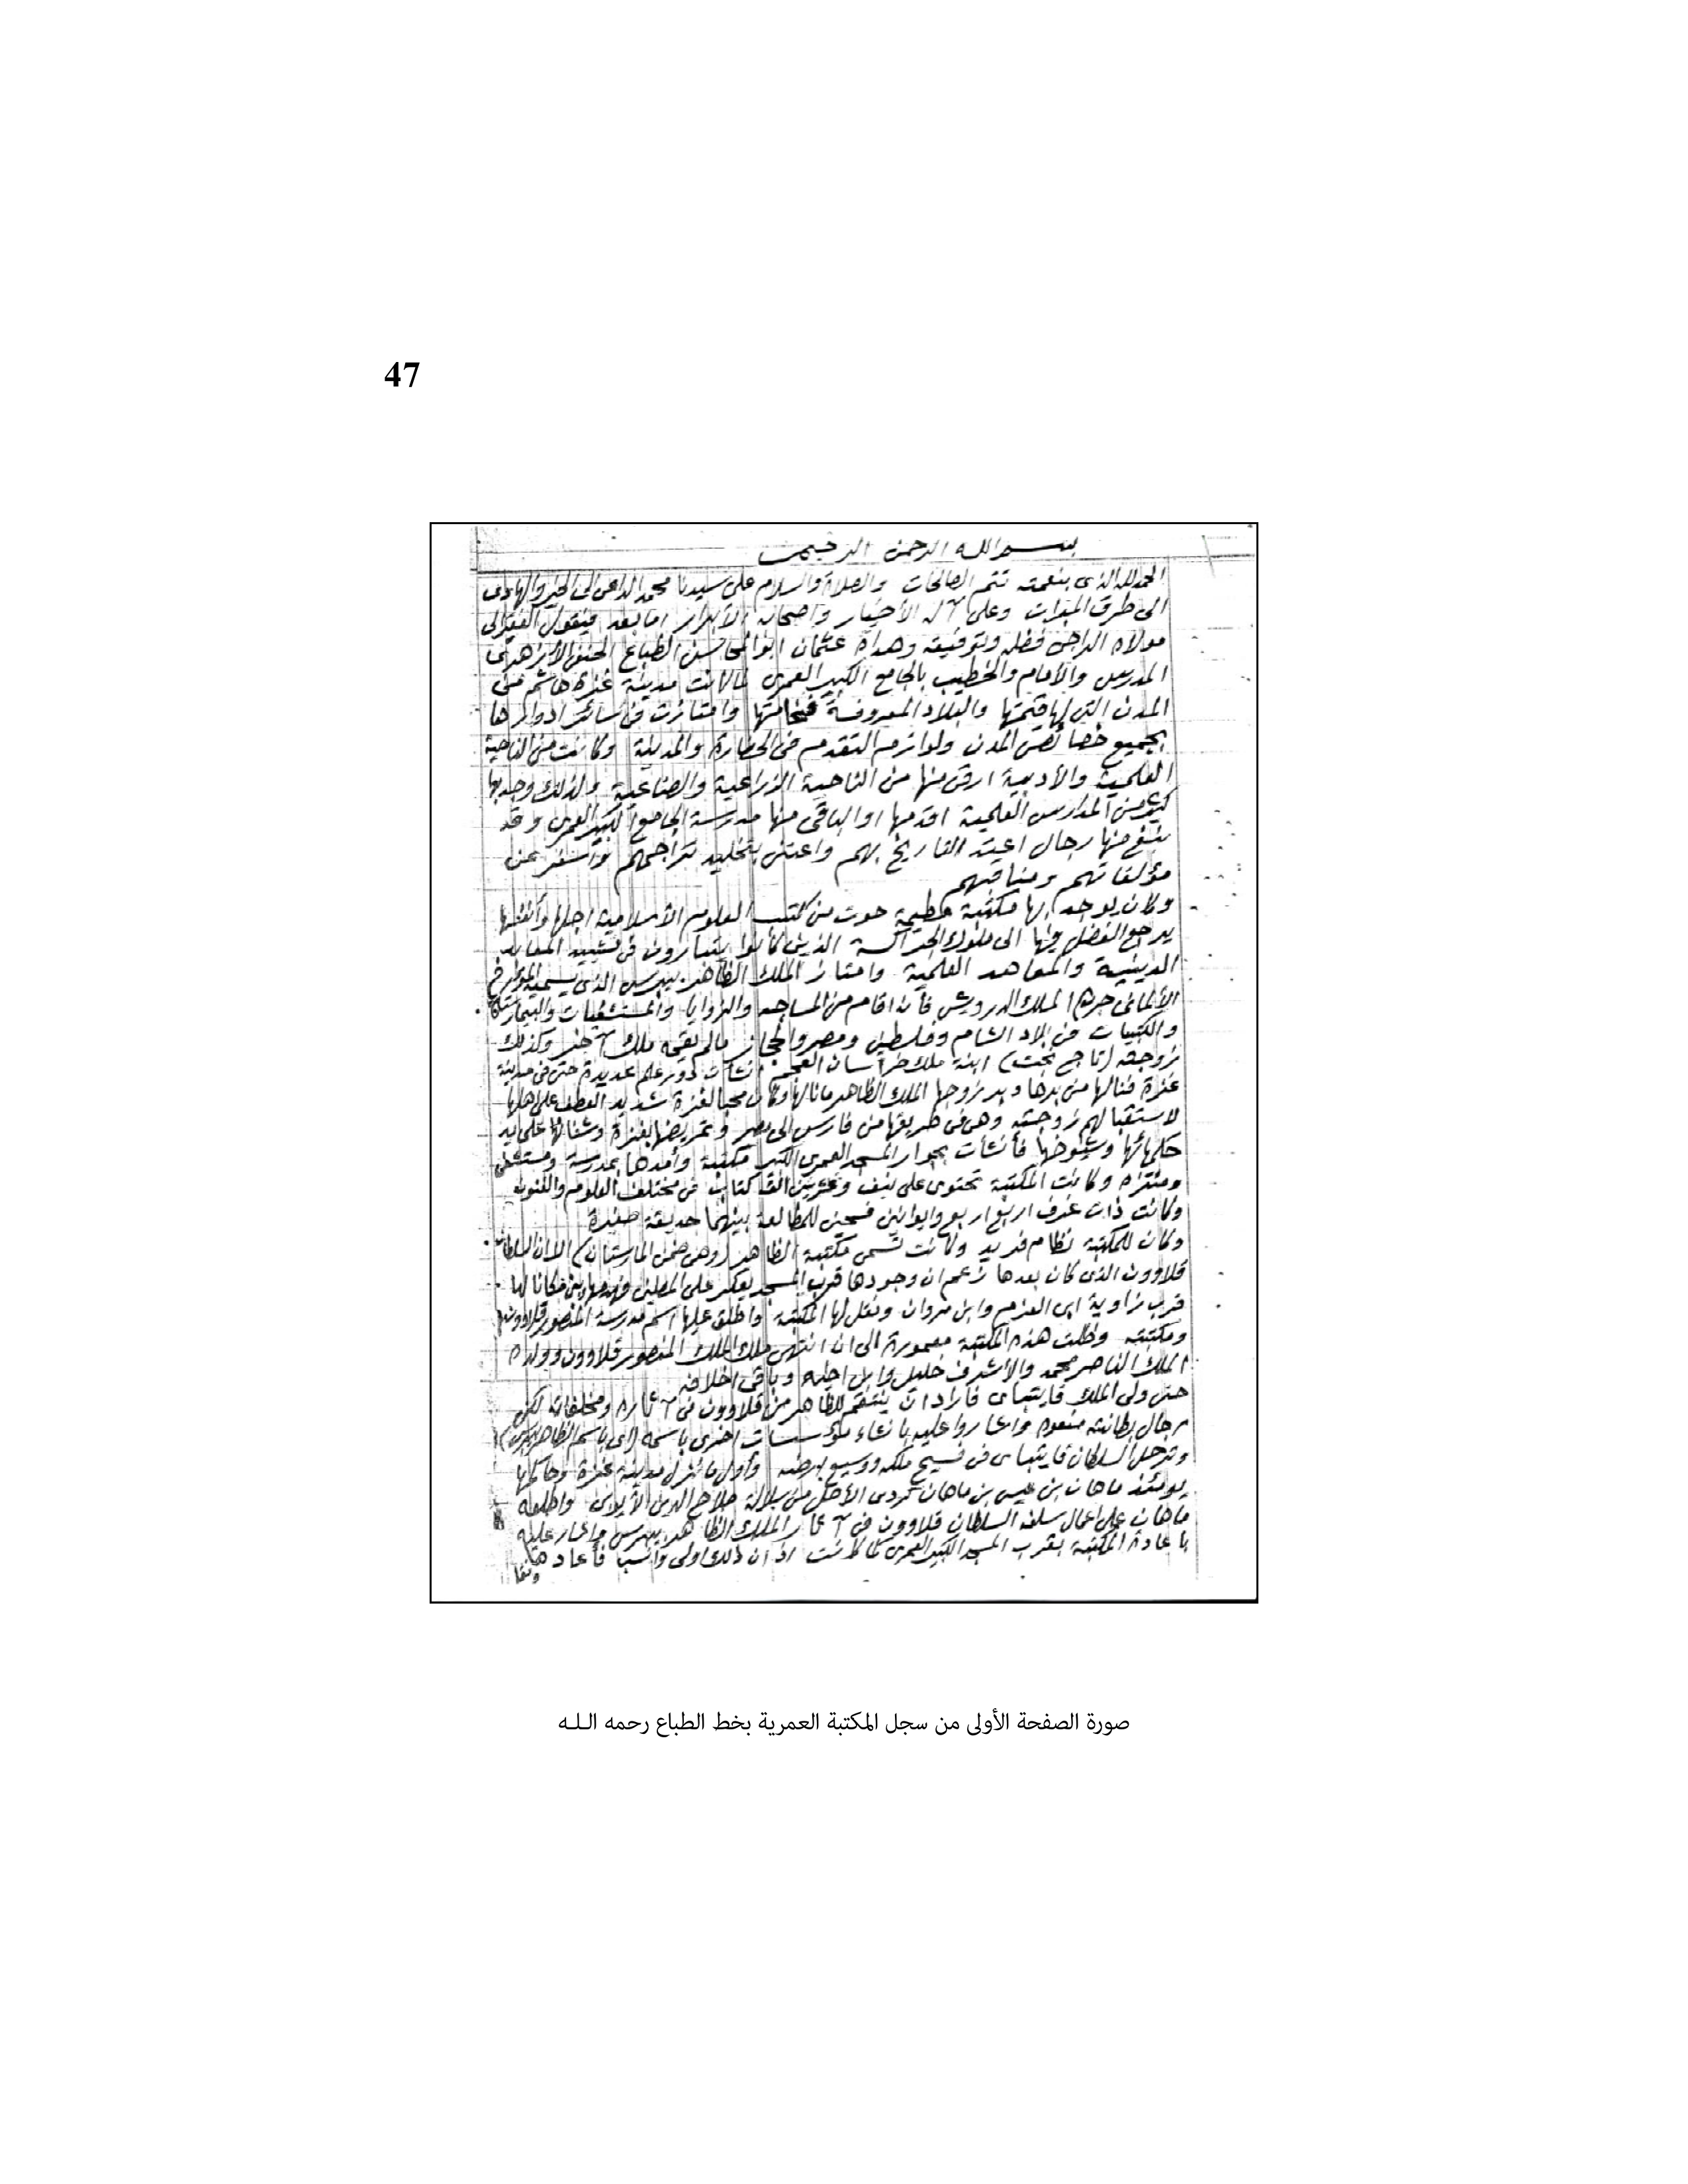 47
بسم الله الرحمن الرحيم
الحمد لله الذى بنعمته تتم الصالحات والصلاة والسلام على سيدنا محمد الداعى الى الخير والهادى
الى طرق المبرات وعلى آله الأخيار وأصحابه الأبرار اما بعد فيقول الفقير الى
مولاه الراجى فضله وتوفيقه وهداه عثمان ابو المحاسن الطباع الحنفى الأزهرى
المدرس والأمام والخطيب بالجامع الكبير العمرى لما كانت مدينة غزة هاشم من
المدن التى لها قيمتها والبلاد المعروفة فخامتها وامتازت فى سائر ادوارها
بجميع خصائص المدن ولوازم التقدم فى الحضارة والمدنية وكانت من الناحية
العلمية والأدبية ارقى منها من الناحية الزراعية والصناعية ولذلك وجد بها
كثير من المدارس العلمية اقدمها او الباقى منها مدرسة الجامع الكبير العمرى وقد
نبغ منها رجال اعتد التاريخ بهم واعتنى بتخليد تراجمهم واسفر عن
مؤلفاتهم ومناقبهم
وكان يوجد بها مكتبة عظيمة حوت من كتب العلوم الأسلامية اجلها وأنفسها
يرجع الفضل فيها الى ملوك الجراكسة الذين كانوا يتبارون فى تشييد المعابد
الدينية والمعاهد العلمية وامتاز الملك الظاهر بيبرس الذى يسميه المؤرخ
الألمانى الملك الدرويش فأنه اقام من المساجد والزوايا والمستشفيات
والكتبيات فى بلاد الشام وفلسطين ومصر والحجاز مالم يقمه ملك آخر وكذلك
زوجته (تاج بخت) ابنة ملك خراسان العجم انشأت دور علم عديدة حتى فى مدينة
غزة فنالها من برها وبر زوجها الملك الظاهر مانالها وكان محبا لغزة شديد العطف على اهلها
لاستقبالهم زوجته وهى فى طريقها من فارس الى مصر وتمريضها بغزة وشفائها على يد
حكمائها وشيوخها فأنشأت بجوار المسجد العمرى الكبير مكتبة وأمدها بمدرسة ومستشفى
ومنتزه وكانت المكتبة تحتوى على نيف وعشرين الف كتاب فى مختلف العلوم والفنون
وكانت ذات غرف اربع وايوانين فسحين للمطالعة بينهما حديقة صغيرة
وكان للمكتبة نظام فريد وكانت تسمى مكتبة الظاهر (وهى ضمن المارستان) الا ان السلطان
قلاوون الذى كان بعدها زعم ان وجودها قرب المسجد يعكر على المصلين مكانا لها
قرب زاوية ابى العزم وابن مروان ونقل لها المكتبة واطلق عليها اسم مدرسة المنصور قلاوون
ومكتبته وظلت هذه المكتبة معمورة الى ان انتهى ملك الملك المنصور قلاوون وولده
الملك الناصر محمد والأشرف خليل وابن اخيه وباقى اخلافه
حتى ولى الملك قايتباى فأراد ان ينتقم للظاهر من قلاوون فى آثاره ومخلفاته لكن
رجال بطانته منعوه واشاروا عليه بانشاء مؤسسات اخرى باسمه (اى باسم الظاهر بيبرس)
وترحل السلطان قايتباى فى فسيح ملكه ووسيع ارضه وأول ما نزل مدينة غزة وحاكمها
يومئذ ماهان بن عيسى بن ماهان كردى الأصل من سلالة صلاح الدين الأيوبى واطلعه
ماهان على اعمال سلفه السلطان قلاوون فى آثار الملك الظاهر بيبرس واشار عليه
باعادة المكتبة بقرب المسجد الكبير العمرى كما كانت اذ ان ذلك اولى وأنسب فأعادها
صورة الصفحة الأولى من سجل المكتبة العمرية بخط الطباع رحمه الله